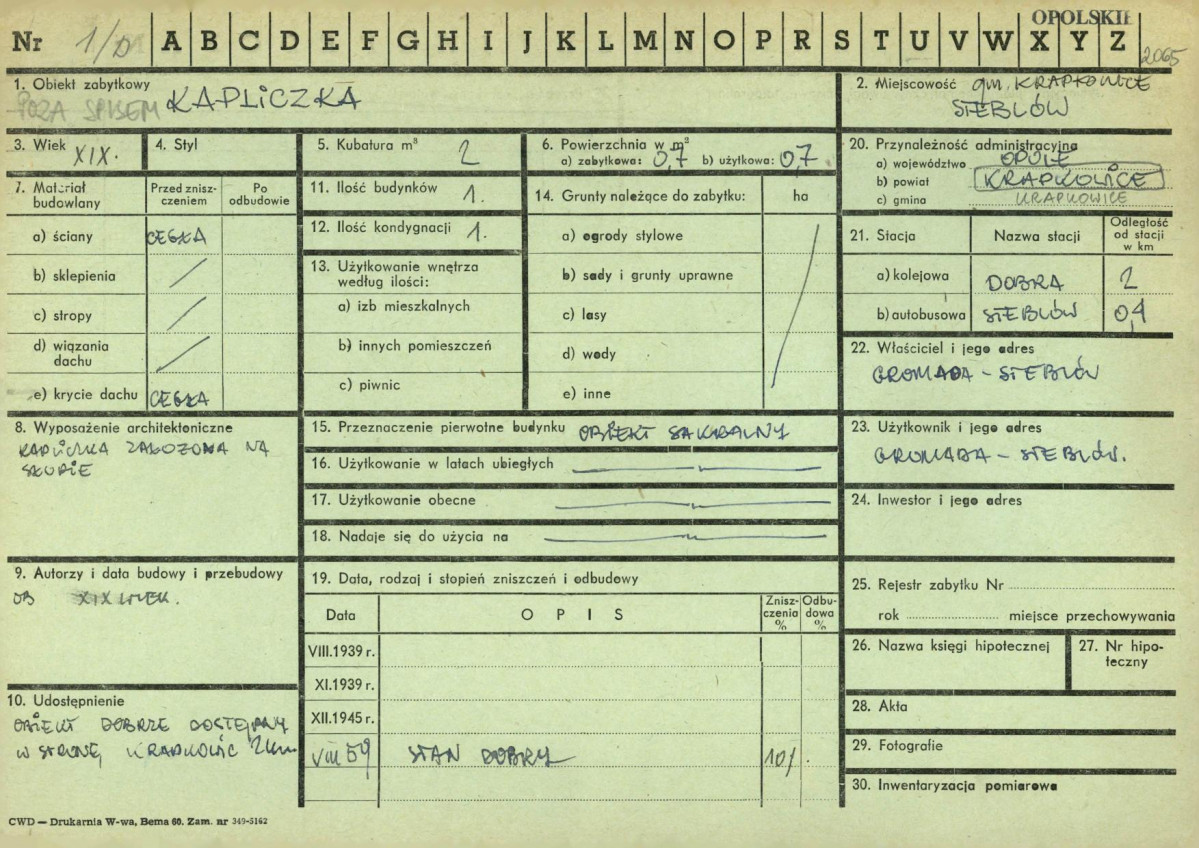 OPOLSKIE
Nr 1/D A B C D E F G H I J K L M N O P R S T U V W X Y Z
2065
1. Obiekt zabytkowy
POZA SPISEM KAPLICZKA
2. Miejscowość gm. KRAPKOWICE
STEBLÓW
3. Wiek XIX.
4. Styl
5. Kubatura m³ 2
6. Powierzchnia w m²
a) zabytkowa: 0,7 b) użytkowa: 0,7
20. Przynależność administracyjna
a) województwo OPOLE
b) powiat KRAPKOWICE
c) gmina KRAPKOWICE
7. Materiał budowlany
Przed zniszczeniem
Po odbudowie
a) ściany CEGŁA
b) sklepienia
c) stropy
d) wiązania dachu
e) krycie dachu CEGŁA
11. Ilość budynków 1.
12. Ilość kondygnacji 1.
13. Użytkowanie wnętrza
według ilości:
a) izb mieszkalnych
b) innych pomieszczeń
c) piwnic
14. Grunty należące do zabytku: ha
a) ogrody stylowe
b) sady i grunty uprawne
c) lasy
d) wody
e) inne
21. Stacja Nazwa stacji Odległość od stacji w km
a) kolejowa DOBRA 2
b) autobusowa STEBLÓW 0,4
22. Właściciel i jego adres
GROMADA - STEBLÓW
8. Wyposażenie architektoniczne
KAPLICZKA ZAŁOZONA NA
SŁUPIE
15. Przeznaczenie pierwotne budynku OBIEKT SAKRALNY
16. Użytkowanie w latach ubiegłych
17. Użytkowanie obecne
18. Nadaje się do użycia na
23. Użytkownik i jego adres
GROMADA - STEBLÓW.
24. Inwestor i jego adres
9. Autorzy i data budowy i przebudowy
OB XIX WIEK.
19. Data, rodzaj i stopień zniszczeń i odbudowy
Data OPIS Zniszczenia % Odbudowa %
VIII.1939 r.
XI.1939 r.
XII.1945 r.
VIII 59 STAN DOBRY 10%
25. Rejestr zabytku Nr
rok miejsce przechowywania
26. Nazwa księgi hipotecznej
27. Nr hipoteczny
10. Udostępnienie
OBIEKT DOBRZE DOSTĘPNY
W STRONĘ KRAPKOWIC 2km
28. Akta
29. Fotografie
30. Inwentaryzacja pomiarowa
CWD — Drukarnia W-wa, Bema 60. Zam. nr 349-5162